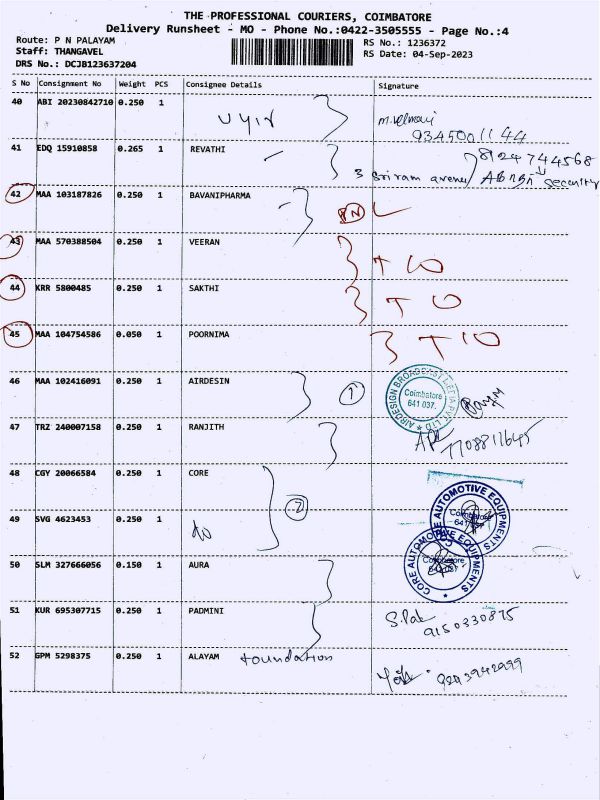 THE PROFESSIONAL COURIERS, COIMBATORE
Delivery Runsheet - MO - Phone No.:0422-3505555 - Page No.:4
Route: P N PALAYAM
Staff: THANGAVEL
DRS No.: DCJB123637204
RS No.: 1236372
RS Date: 04-Sep-2023
S No Consignment No Weight PCS Consignee Details Signature
40 ABI 20230842710 0.250 1
9345001144
41 EDQ 15910858 0.265 1 REVATHI
8124744568
3 Sriram avenue security
42 MAA 103187826 0.250 1 BAVANIPHARMA
43 MAA 570388504 0.250 1 VEERAN
44 KRR 5800485 0.250 1 SAKTHI
45 MAA 104754586 0.050 1 POORNIMA
46 MAA 102416091 0.250 1 AIRDESIN 1
Coimbatore
641 037.
47 TRZ 240007158 0.250 1 RANJITH
48 CGY 20066584 0.250 1 CORE
2
CORE AUTOMOTIVE EQUIPMENTS
49 SVG 4623453 0.250 1 do
CORE AUTOMOTIVE EQUIPMENTS
50 SLM 327666056 0.150 1 AURA
51 KUR 695307715 0.250 1 PADMINI
9150330875
52 GPM 5298375 0.250 1 ALAYAM foundation